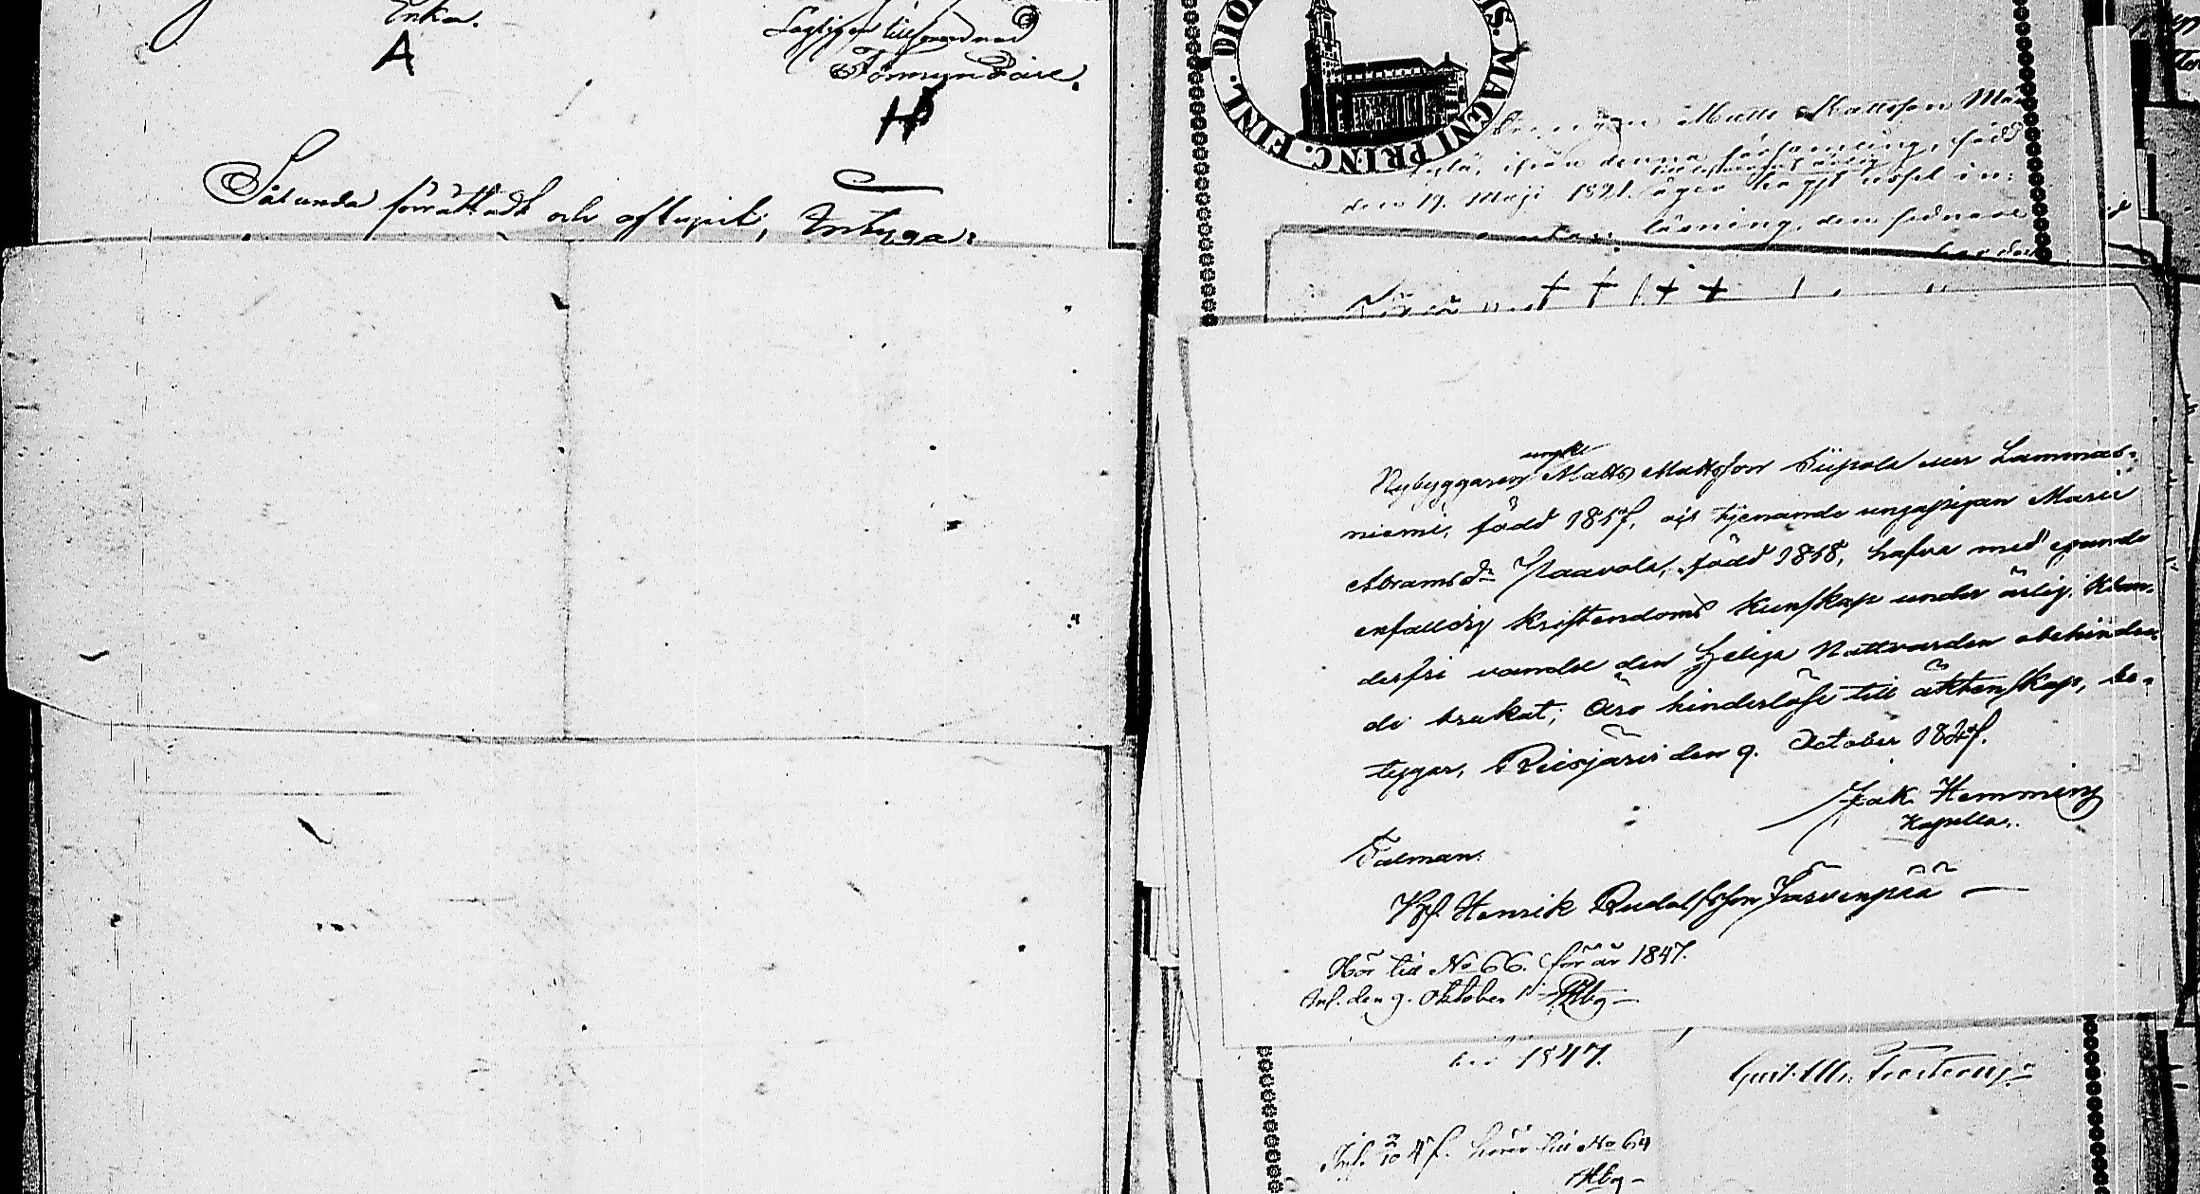 Enka.
A
Lagligen tillförordnad
Förmyndare.
Sålunda förrättadt och afslupit; Intyga:
DIO
IS. MAGNI PRINC. FINL.
Matts Mattsson
ifrån denna församling, född
den 19. Maji 1821. äger
läsning, den sednare
ungkl
Nybyggaren Matts Mattsson Siipola ur Lammas-
niemi, född 1817, och tjenande ungapigan Maria
Abramsdr Paavola, född 1818, hafva med egande
enfalldig Kristendoms Kunskap under ärlig, klan-
derfri vandel den Heliga Nattvarden obehindra-
de brukat; Äro hinderlöse till äktenskap, be-
tygar, Reisjärvi den 9. October 1847.
Jak. Hemming
Kapella.
Talman:
Henrik Rudolfsson Järvenpää —
Hör till No 66. för år 1847.
Inl. den 9. Oktober
1847.
hörer till No 64